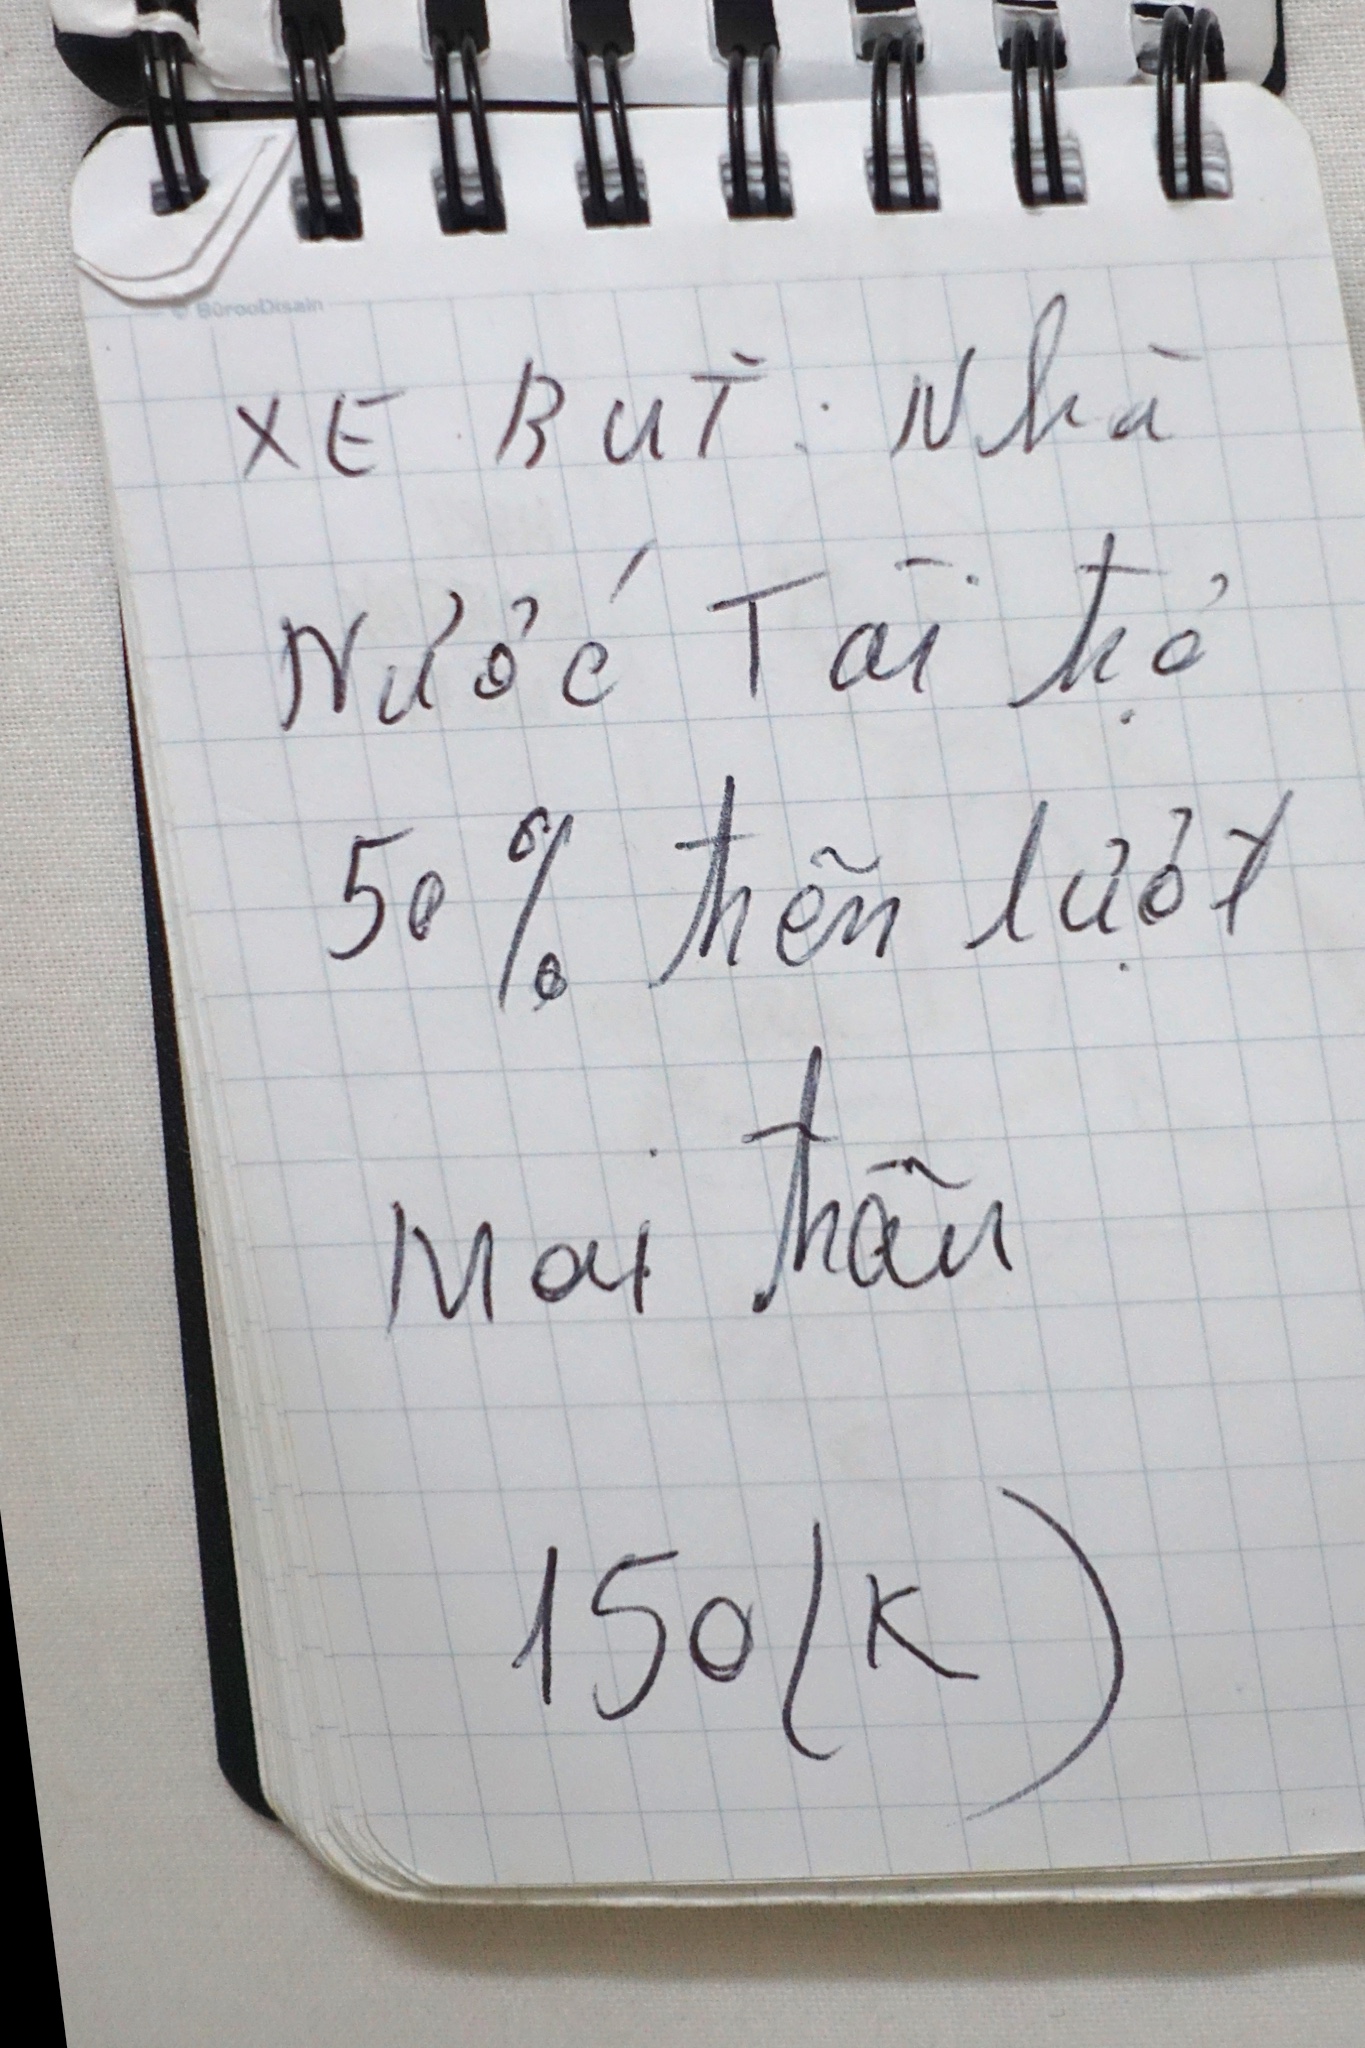 © BürooDisain
XE BUT. Nhà
Nước Tài trợ
50% trên lượt
Mai trân
150(K)